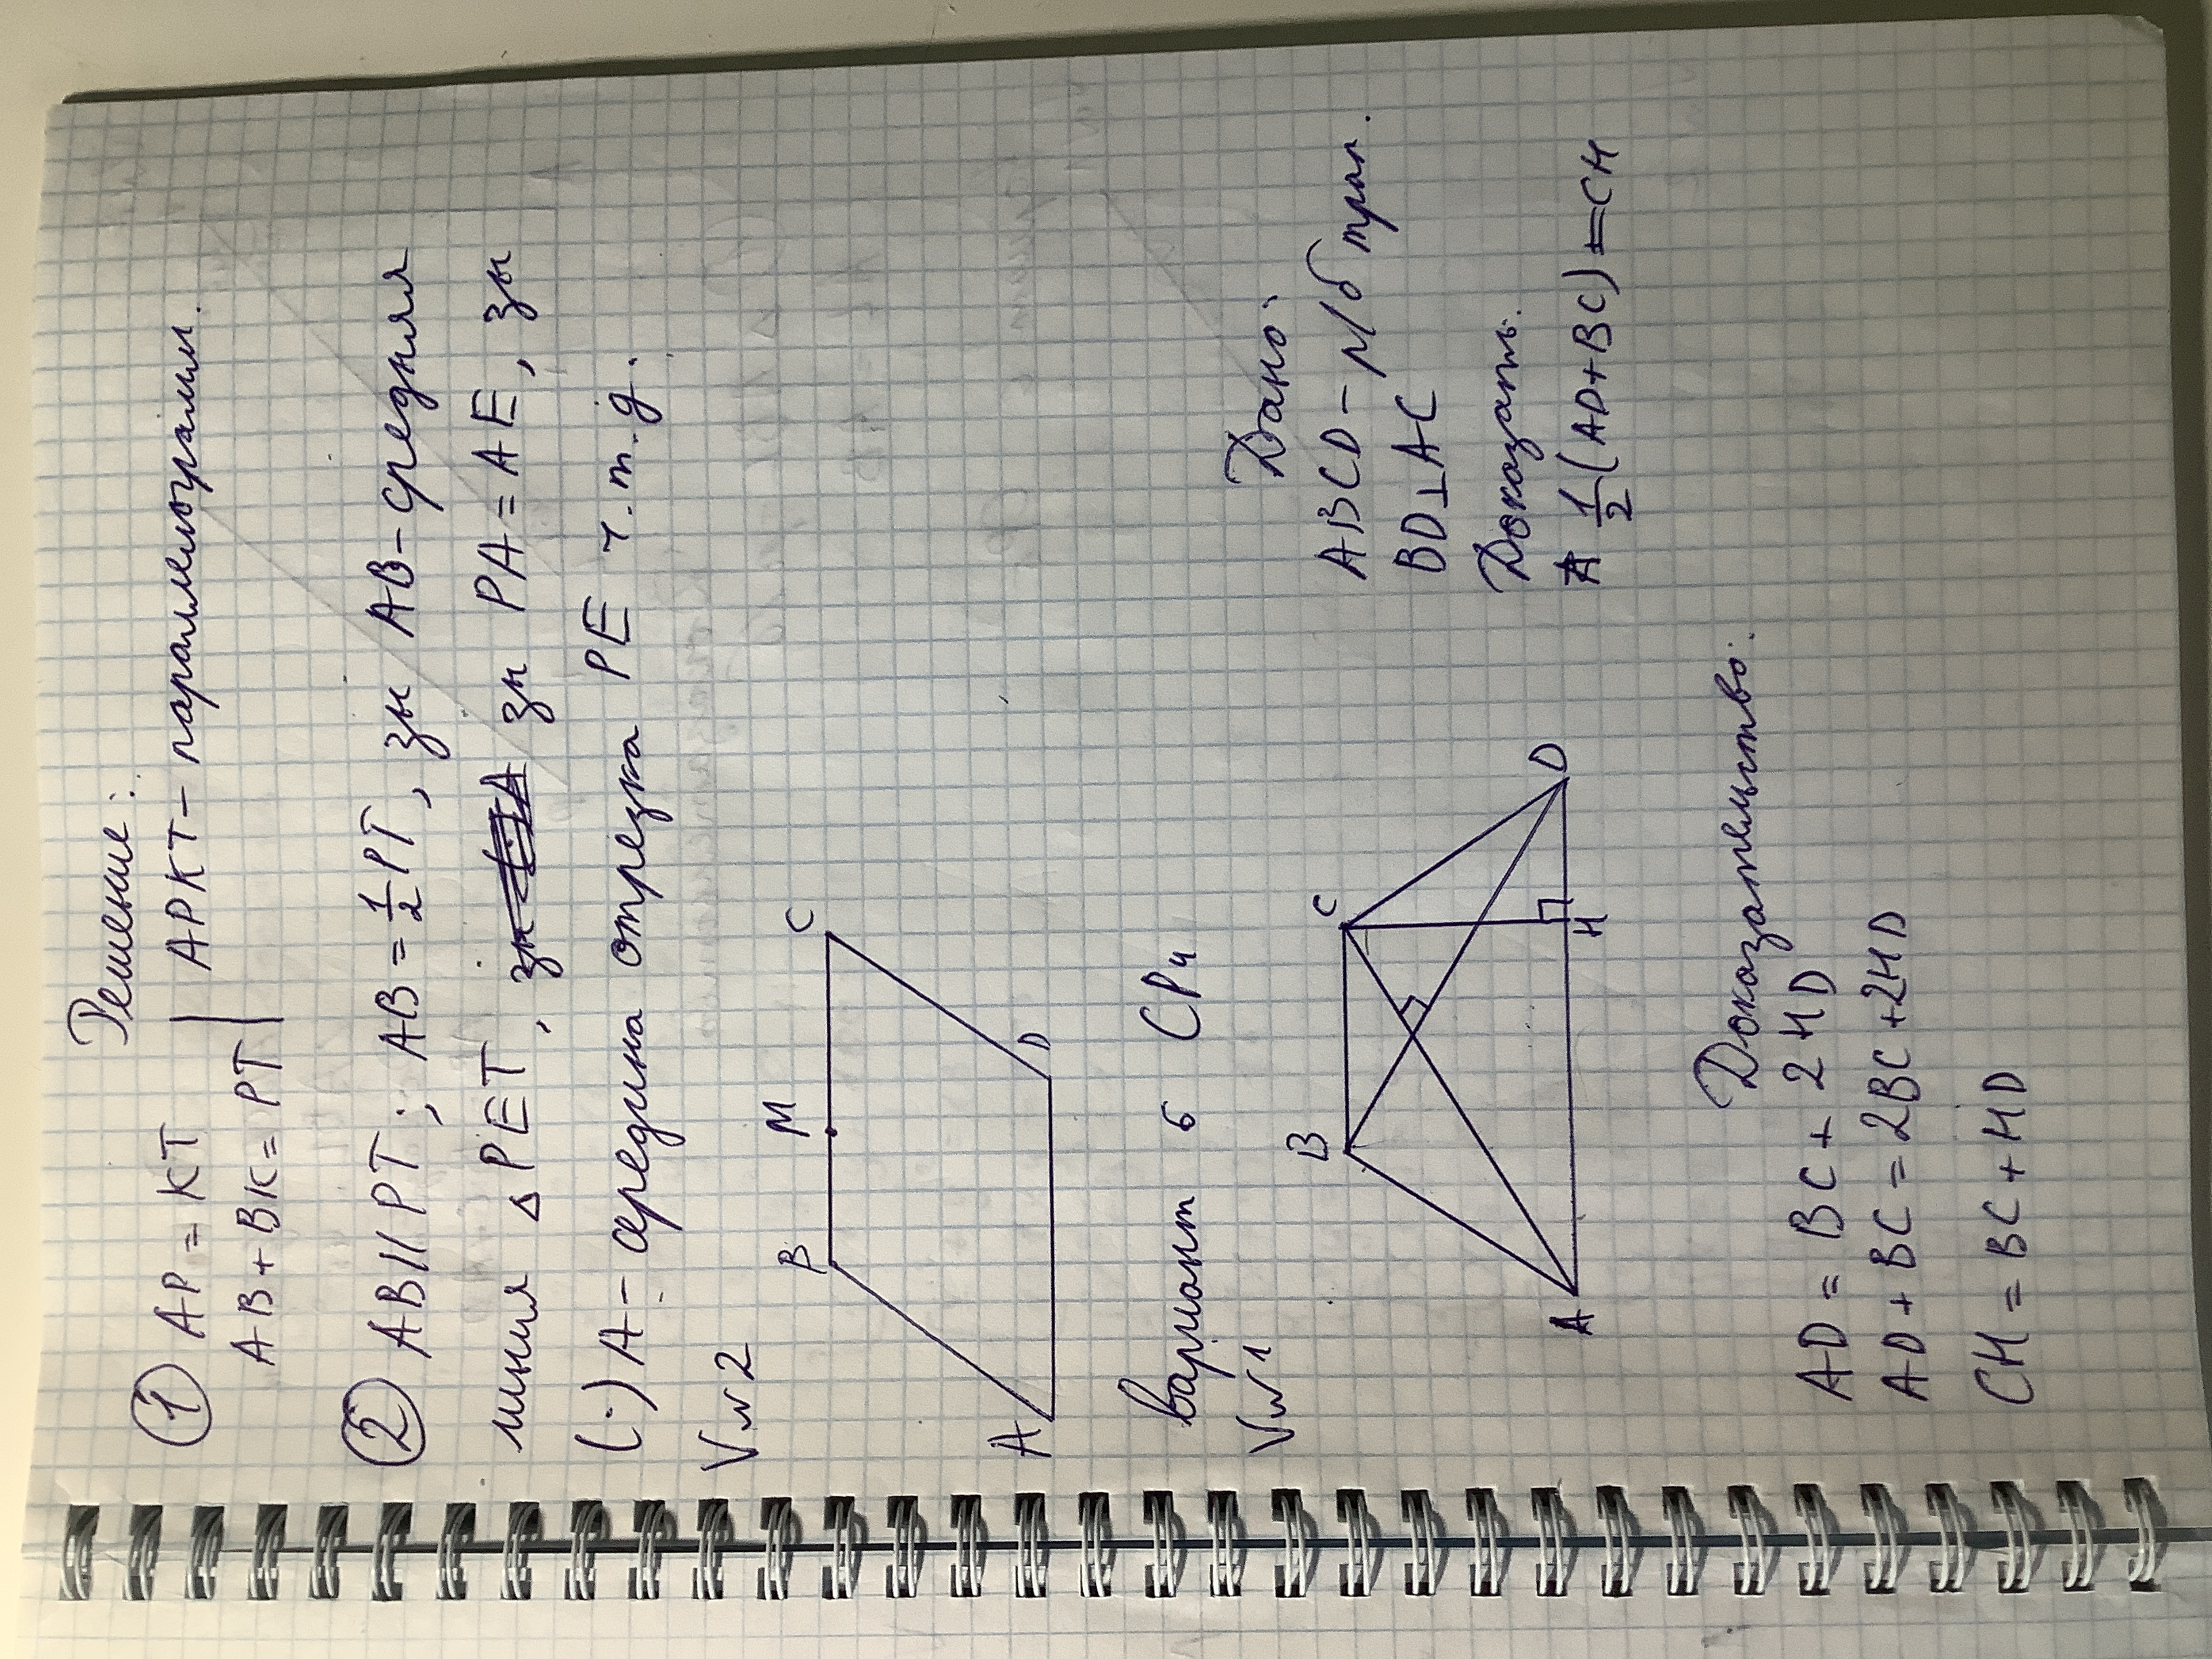 Решение:
① AP = KT | APKT – параллелограмм.
AB + BK = PT
② AB || PT ; AB = 1/2 PT, зн AB – средняя
линия △ PET, зн PA = AE, зн
(·) A – середина отрезка PE ч.т.д.
V№2
B M C
A D
вариант 6 СР4
V№1
Дано:
B C
ABCD – р/б трап.
BD ⊥ AC
Доказать:
A H D
1/2 (AD + BC) = CH
Доказательство:
AD = BC + 2HD
AD + BC = 2BC + 2HD
CH = BC + HD